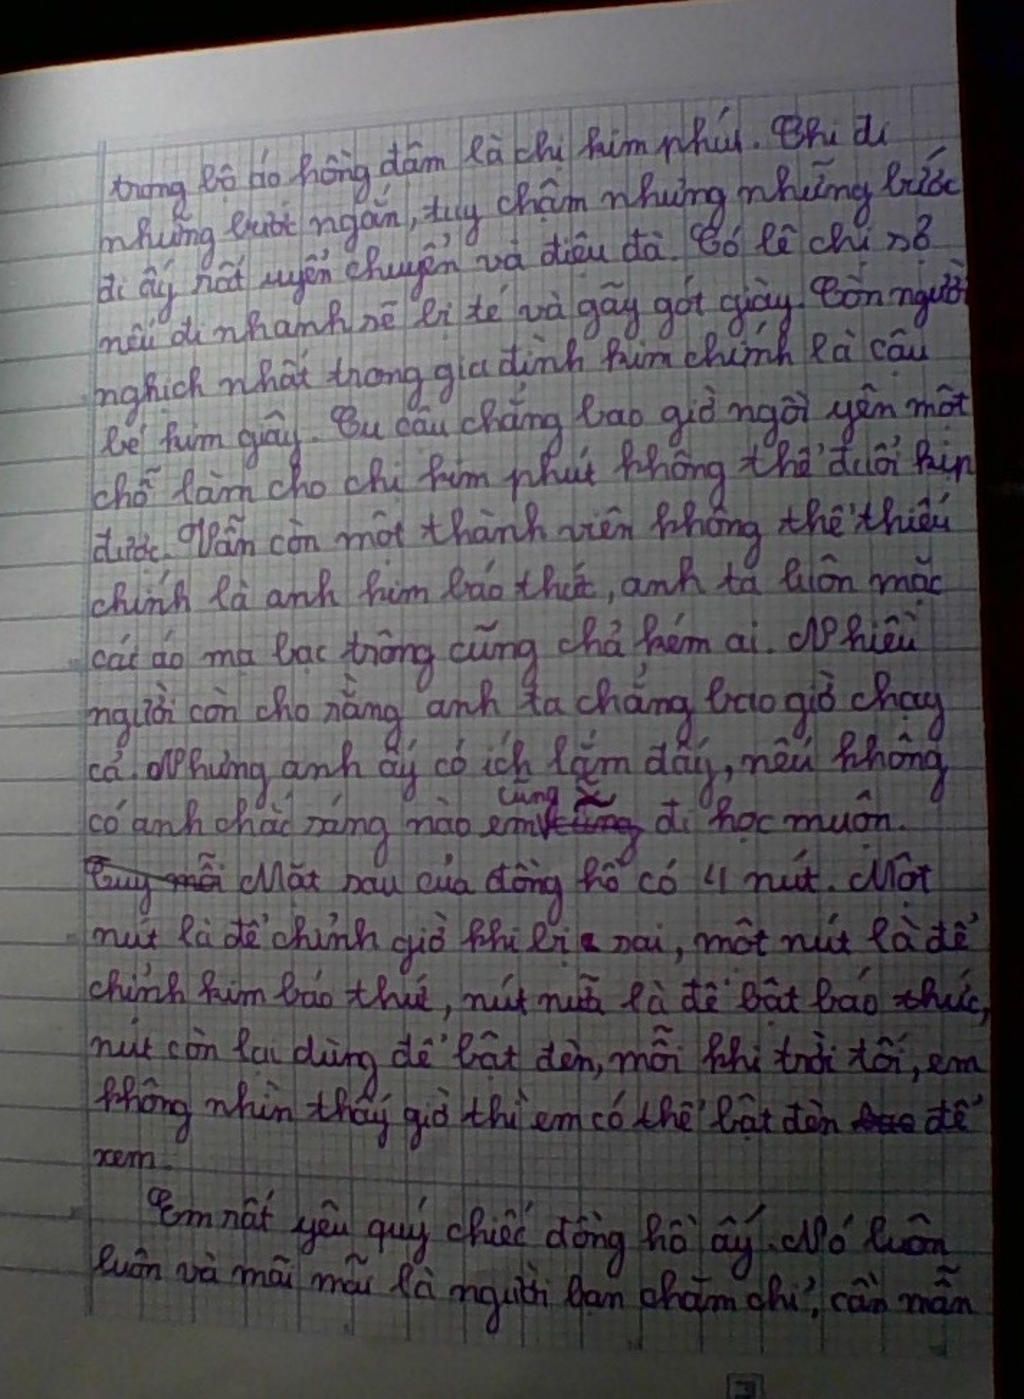 trong bộ áo hồng đậm là chị kim phút. Chị đi
những bước ngắn, tuy chậm nhưng những bước
đi ấy rất uyển chuyển và điệu đà. Có lẽ chị sợ
nếu đi nhanh sẽ bị té và gãy gót giày. Còn người
nghịch nhất trong gia đình kim chính là cậu
bé kim giây. Cu cậu chẳng bao giờ ngồi yên một
chỗ làm cho chị kim phút không thể đuổi kịp
được. Vẫn còn một thành viên không thể thiếu
chính là anh kim báo thức, anh ta luôn mặc
cái áo mạ bạc trông cũng chả kém ai. Nhiều
người còn cho rằng anh ta chẳng bao giờ chạy
cả. Nhưng anh ấy có ích lắm đấy, nếu không
có anh chắc sáng nào em cũng đi học muộn.
Mặt sau của đồng hồ có 4 nút. Một
nút là để chỉnh giờ khi bị sai, một nút là để
chỉnh kim báo thức, nút nữa là để bật báo thức,
nút còn lại dùng để bật đèn, mỗi khi trời tối, em
không nhìn thấy giờ thì em có thể bật đèn để
xem.
Em rất yêu quý chiếc đồng hồ ấy. Nó luôn
luôn và mãi mãi là người bạn chăm chỉ, cần mẫn